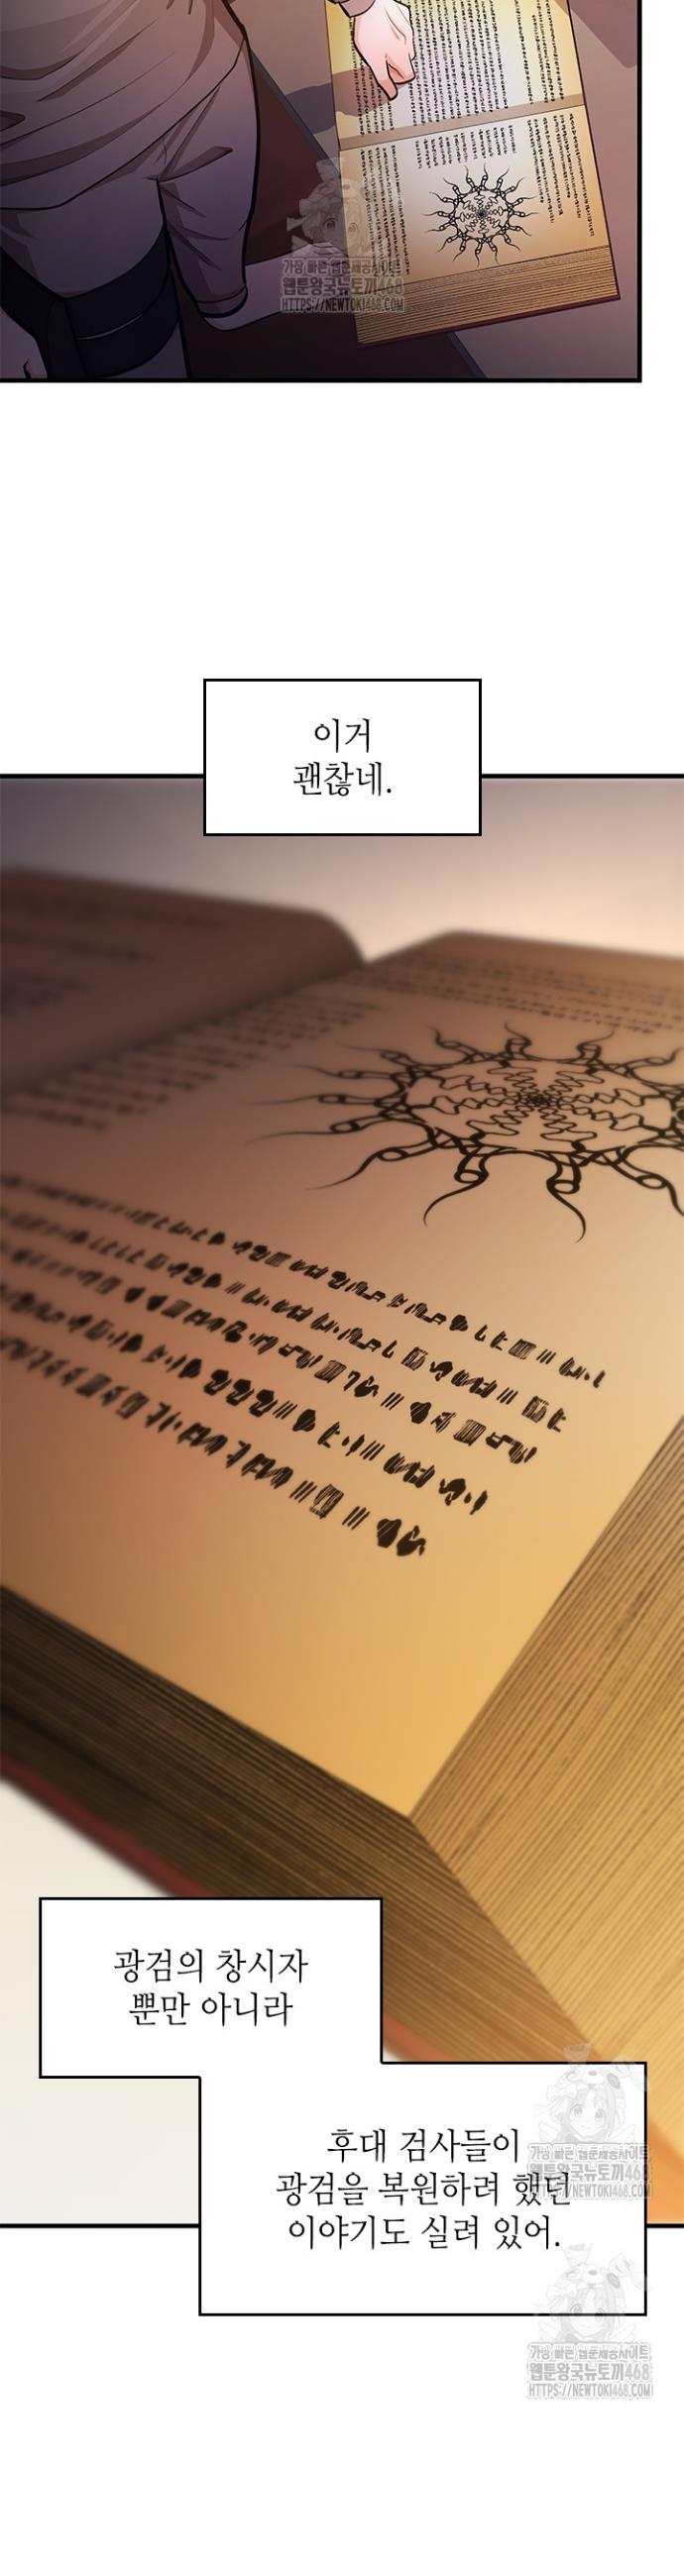 가장 빠른 웹툰제공사이트
웹툰왕국뉴토끼468
HTTPS://NEWTOKI468.COM
이거
괜찮네.
광검의 창시자
뿐만 아니라
후대 검사들이
광검을 복원하려 했던
이야기도 실려 있어.
가장 빠른 웹툰제공사이트
웹툰왕국뉴토끼468
HTTPS://NEWTOKI468.COM
가장 빠른 웹툰제공사이트
웹툰왕국뉴토끼468
HTTPS://NEWTOKI468.COM